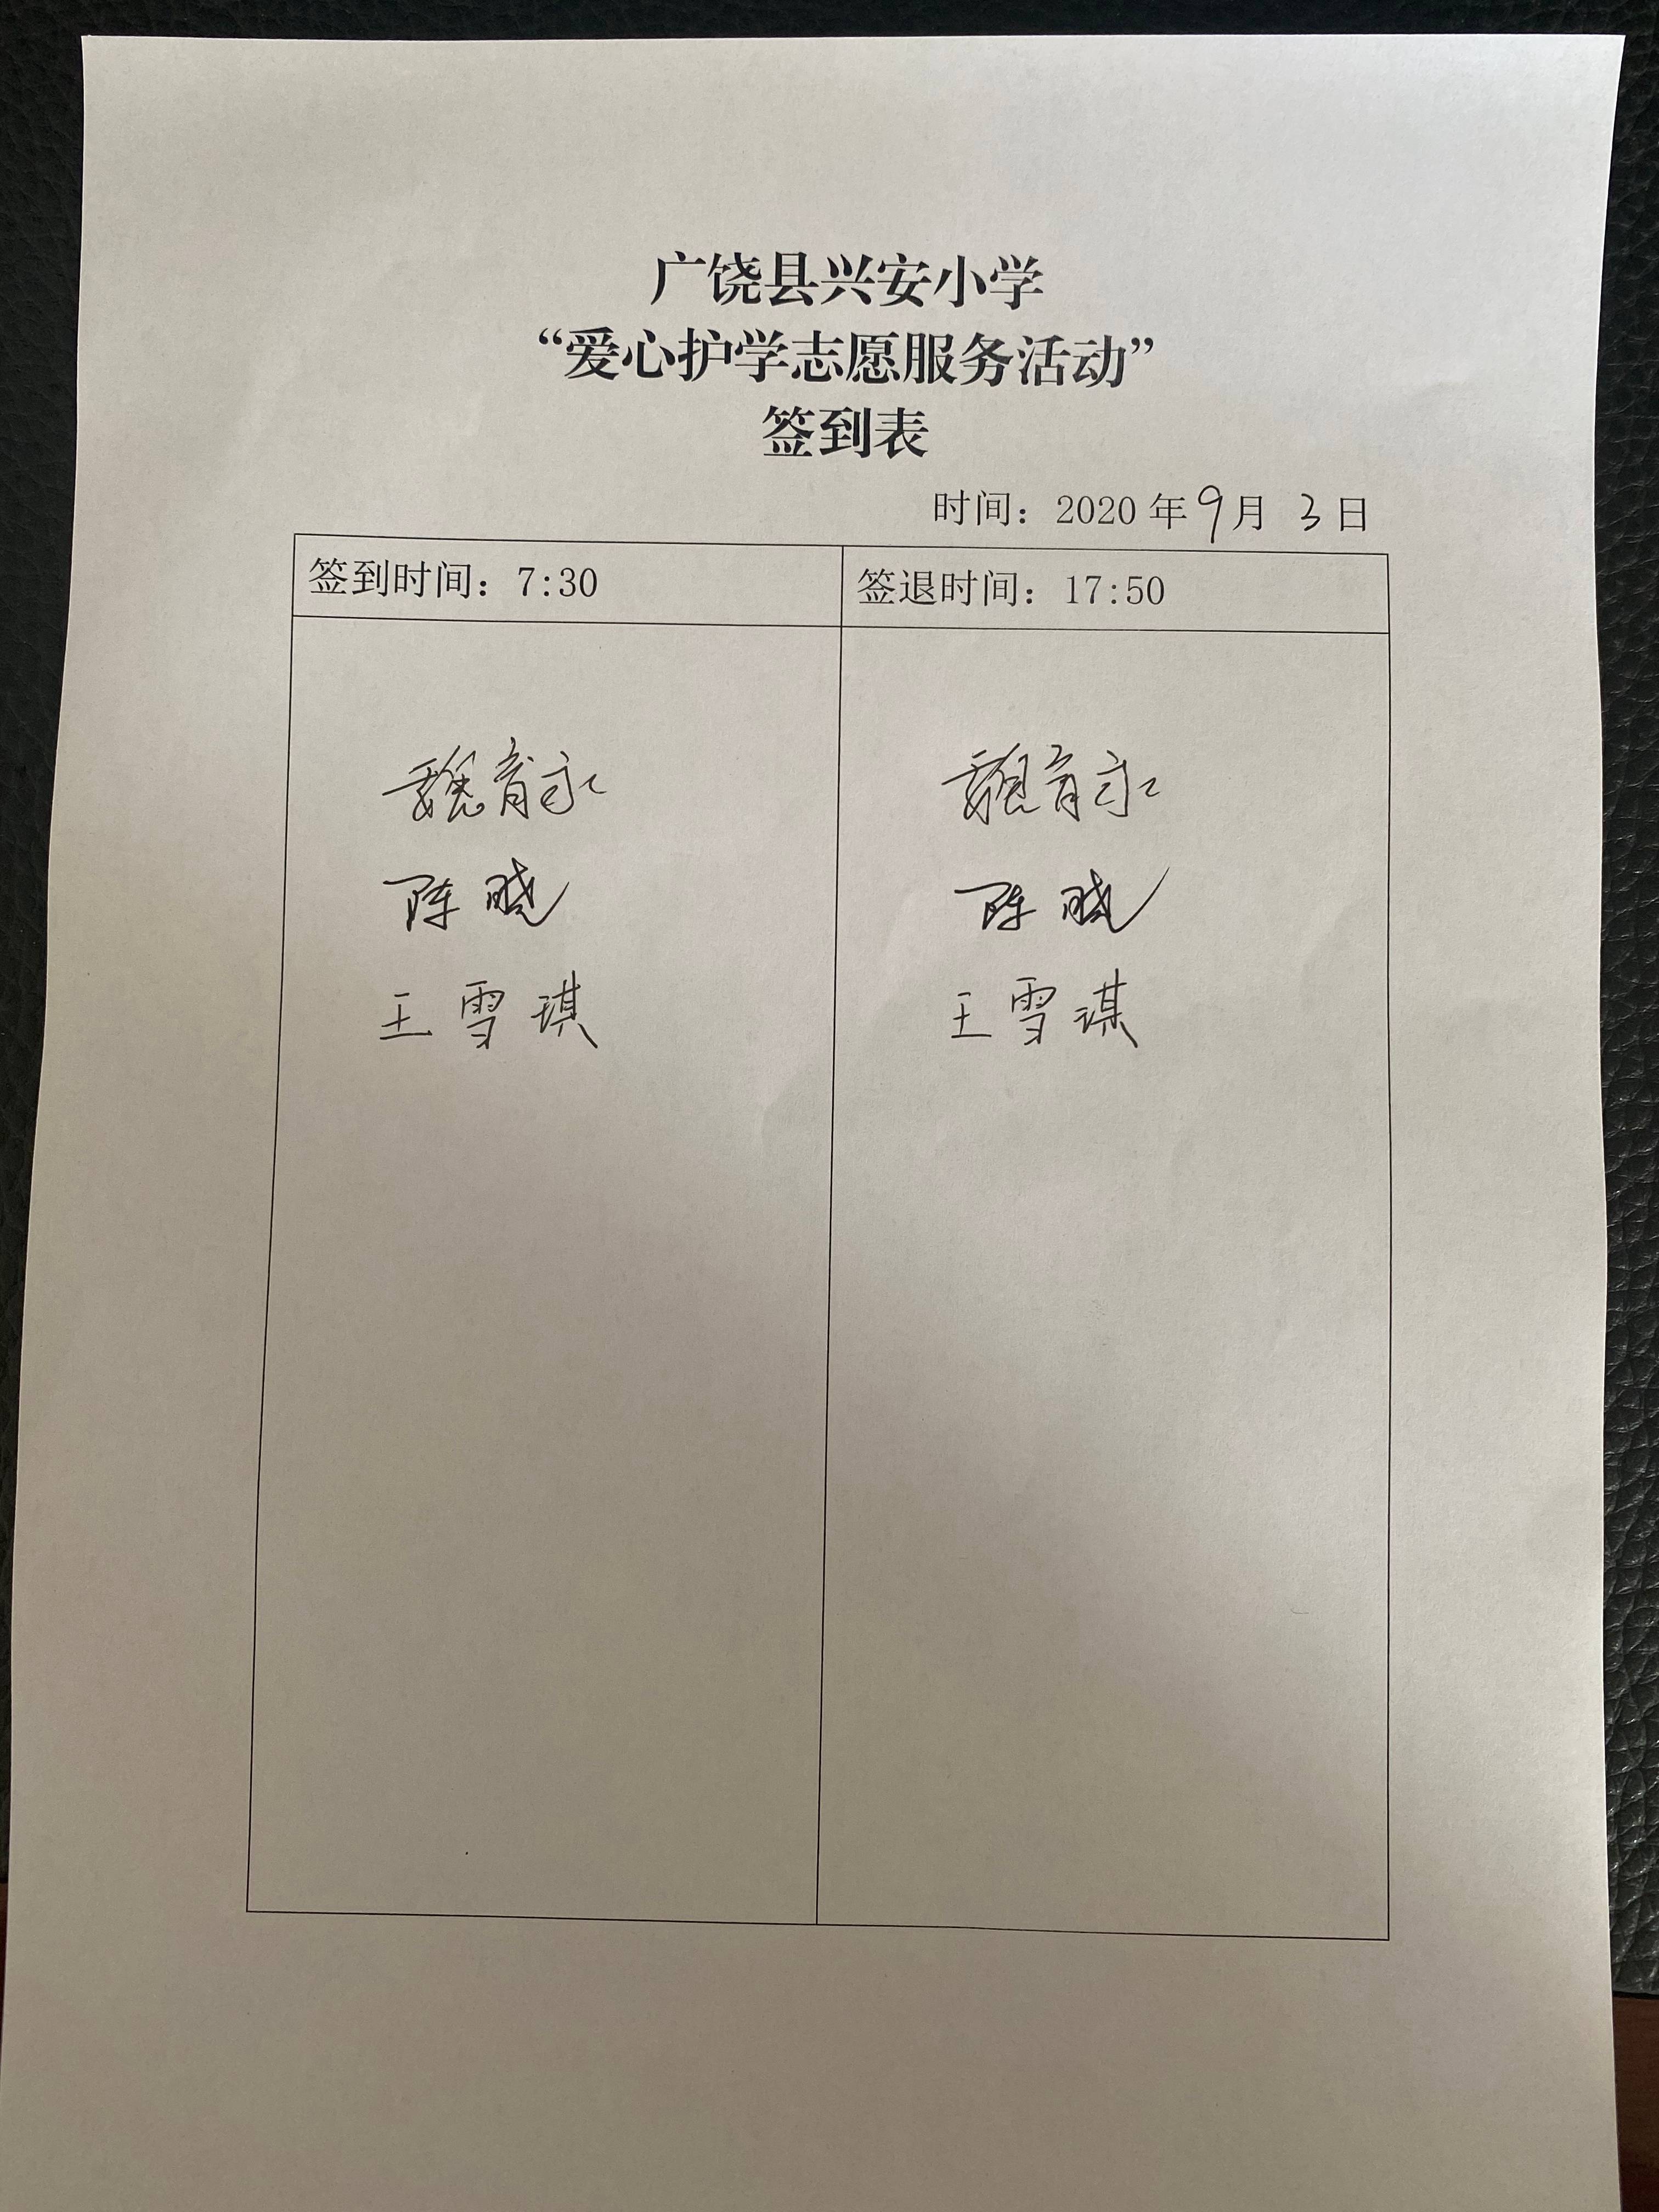 广饶县兴安小学
“爱心护学志愿服务活动”
签到表
时间：2020 年 9 月 3 日
签到时间：7:30 签退时间：17:50
魏育永 魏育永
陈晓 陈晓
王雪琪 王雪琪